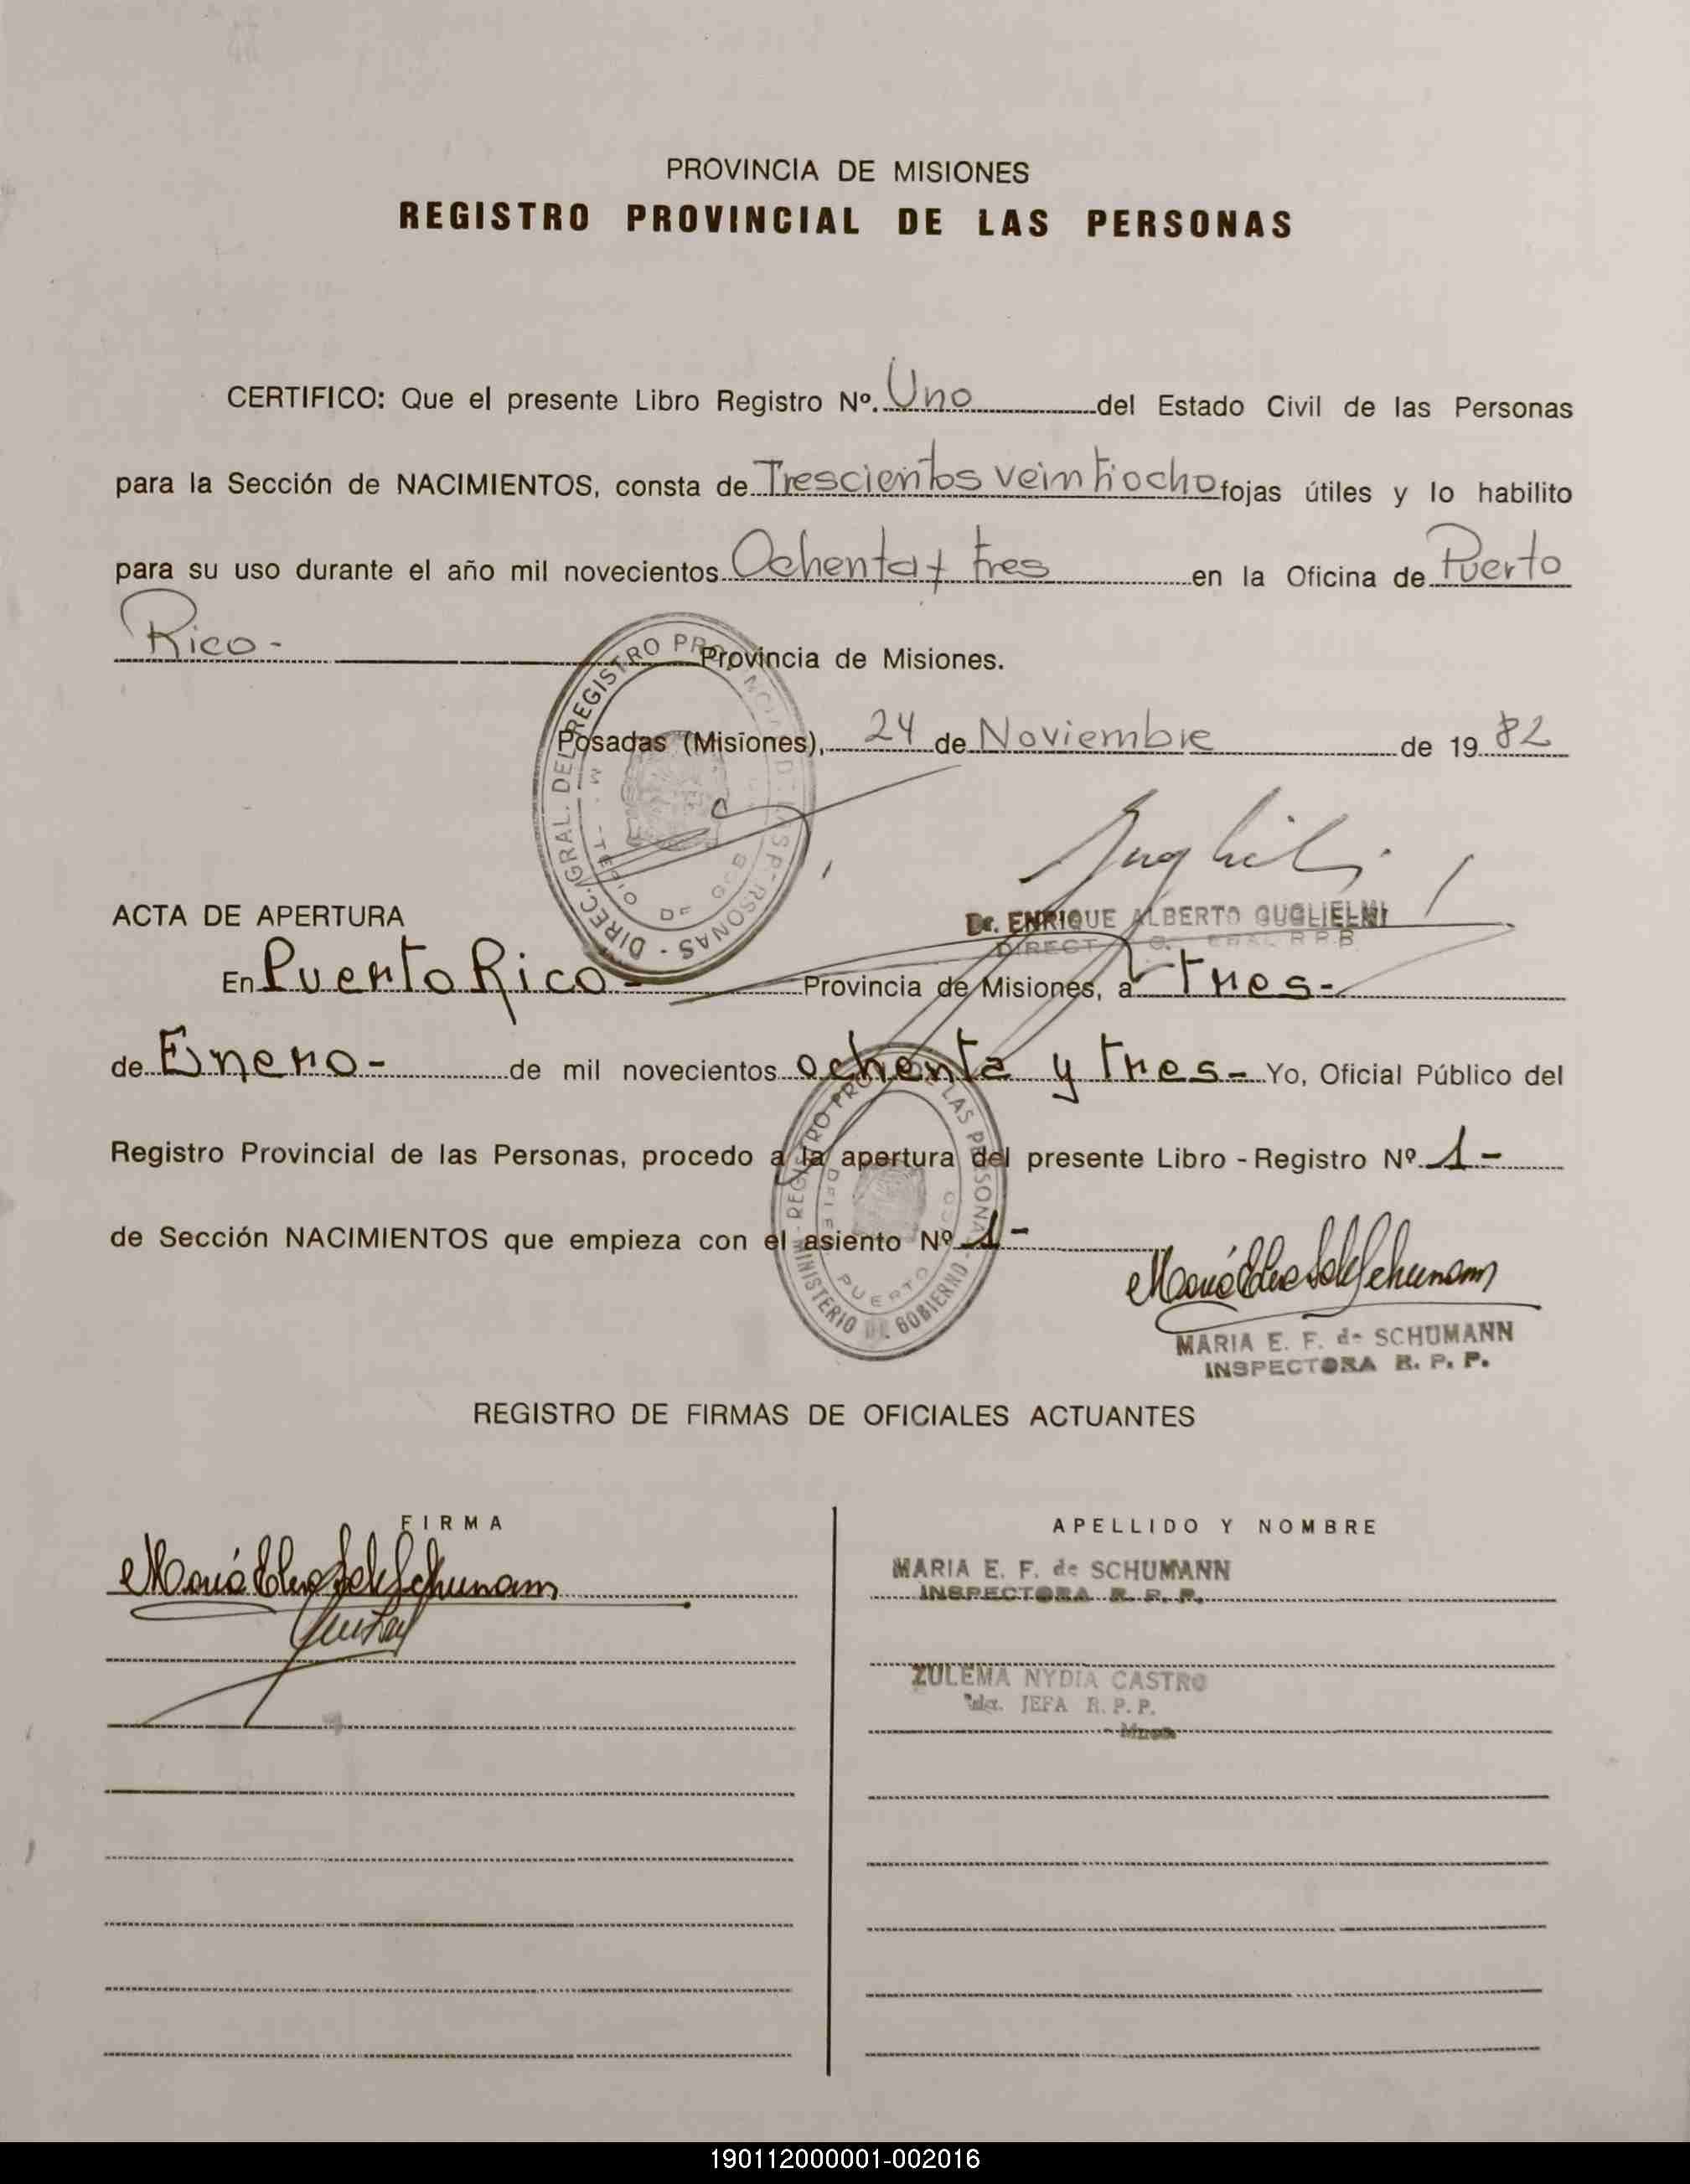 PROVINCIA DE MISIONES
REGISTRO PROVINCIAL DE LAS PERSONAS
CERTIFICO: Que el presente Libro Registro Nº. Uno del Estado Civil de las Personas
para la Sección de NACIMIENTOS, consta de Trescientos veintiocho fojas útiles y lo habilito
para su uso durante el año mil novecientos Ochenta y tres en la Oficina de Puerto
Rico - Provincia de Misiones.
Posadas (Misiones), 24 de Noviembre de 1982
Dr. ENRIQUE ALBERTO GUGLIELMI
ACTA DE APERTURA
En Puerto Rico - Provincia de Misiones, a tres-
de Enero- de mil novecientos ochenta y tres- Yo, Oficial Público del
Registro Provincial de las Personas, procedo a la apertura del presente Libro - Registro Nº 1-
de Sección NACIMIENTOS que empieza con el asiento Nº 1-
MARIA E. F. de SCHUMANN
INSPECTORA R. P. P.
REGISTRO DE FIRMAS DE OFICIALES ACTUANTES
FIRMA
APELLIDO Y NOMBRE
MARIA E. F. de SCHUMANN
INSPECTORA R. P. P.
ZULEMA NYDIA CASTRO
JEFA R. P. P.
190112000001-002016